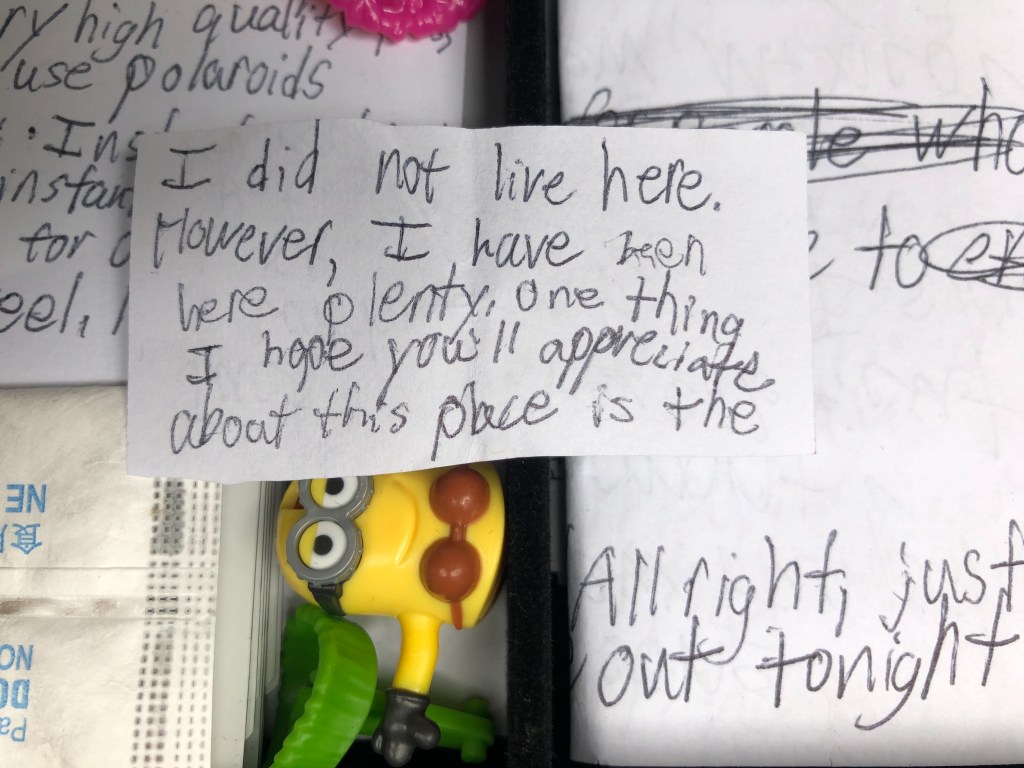 ry high quality,
use polaroids
: Ins
instan
for
eel,
I did not live here.
However, I have been
here plenty. One thing
I hope you'll appreciate
about this place is the
who
to
All right, just
out tonight
NE
食
Pa
DO
NO